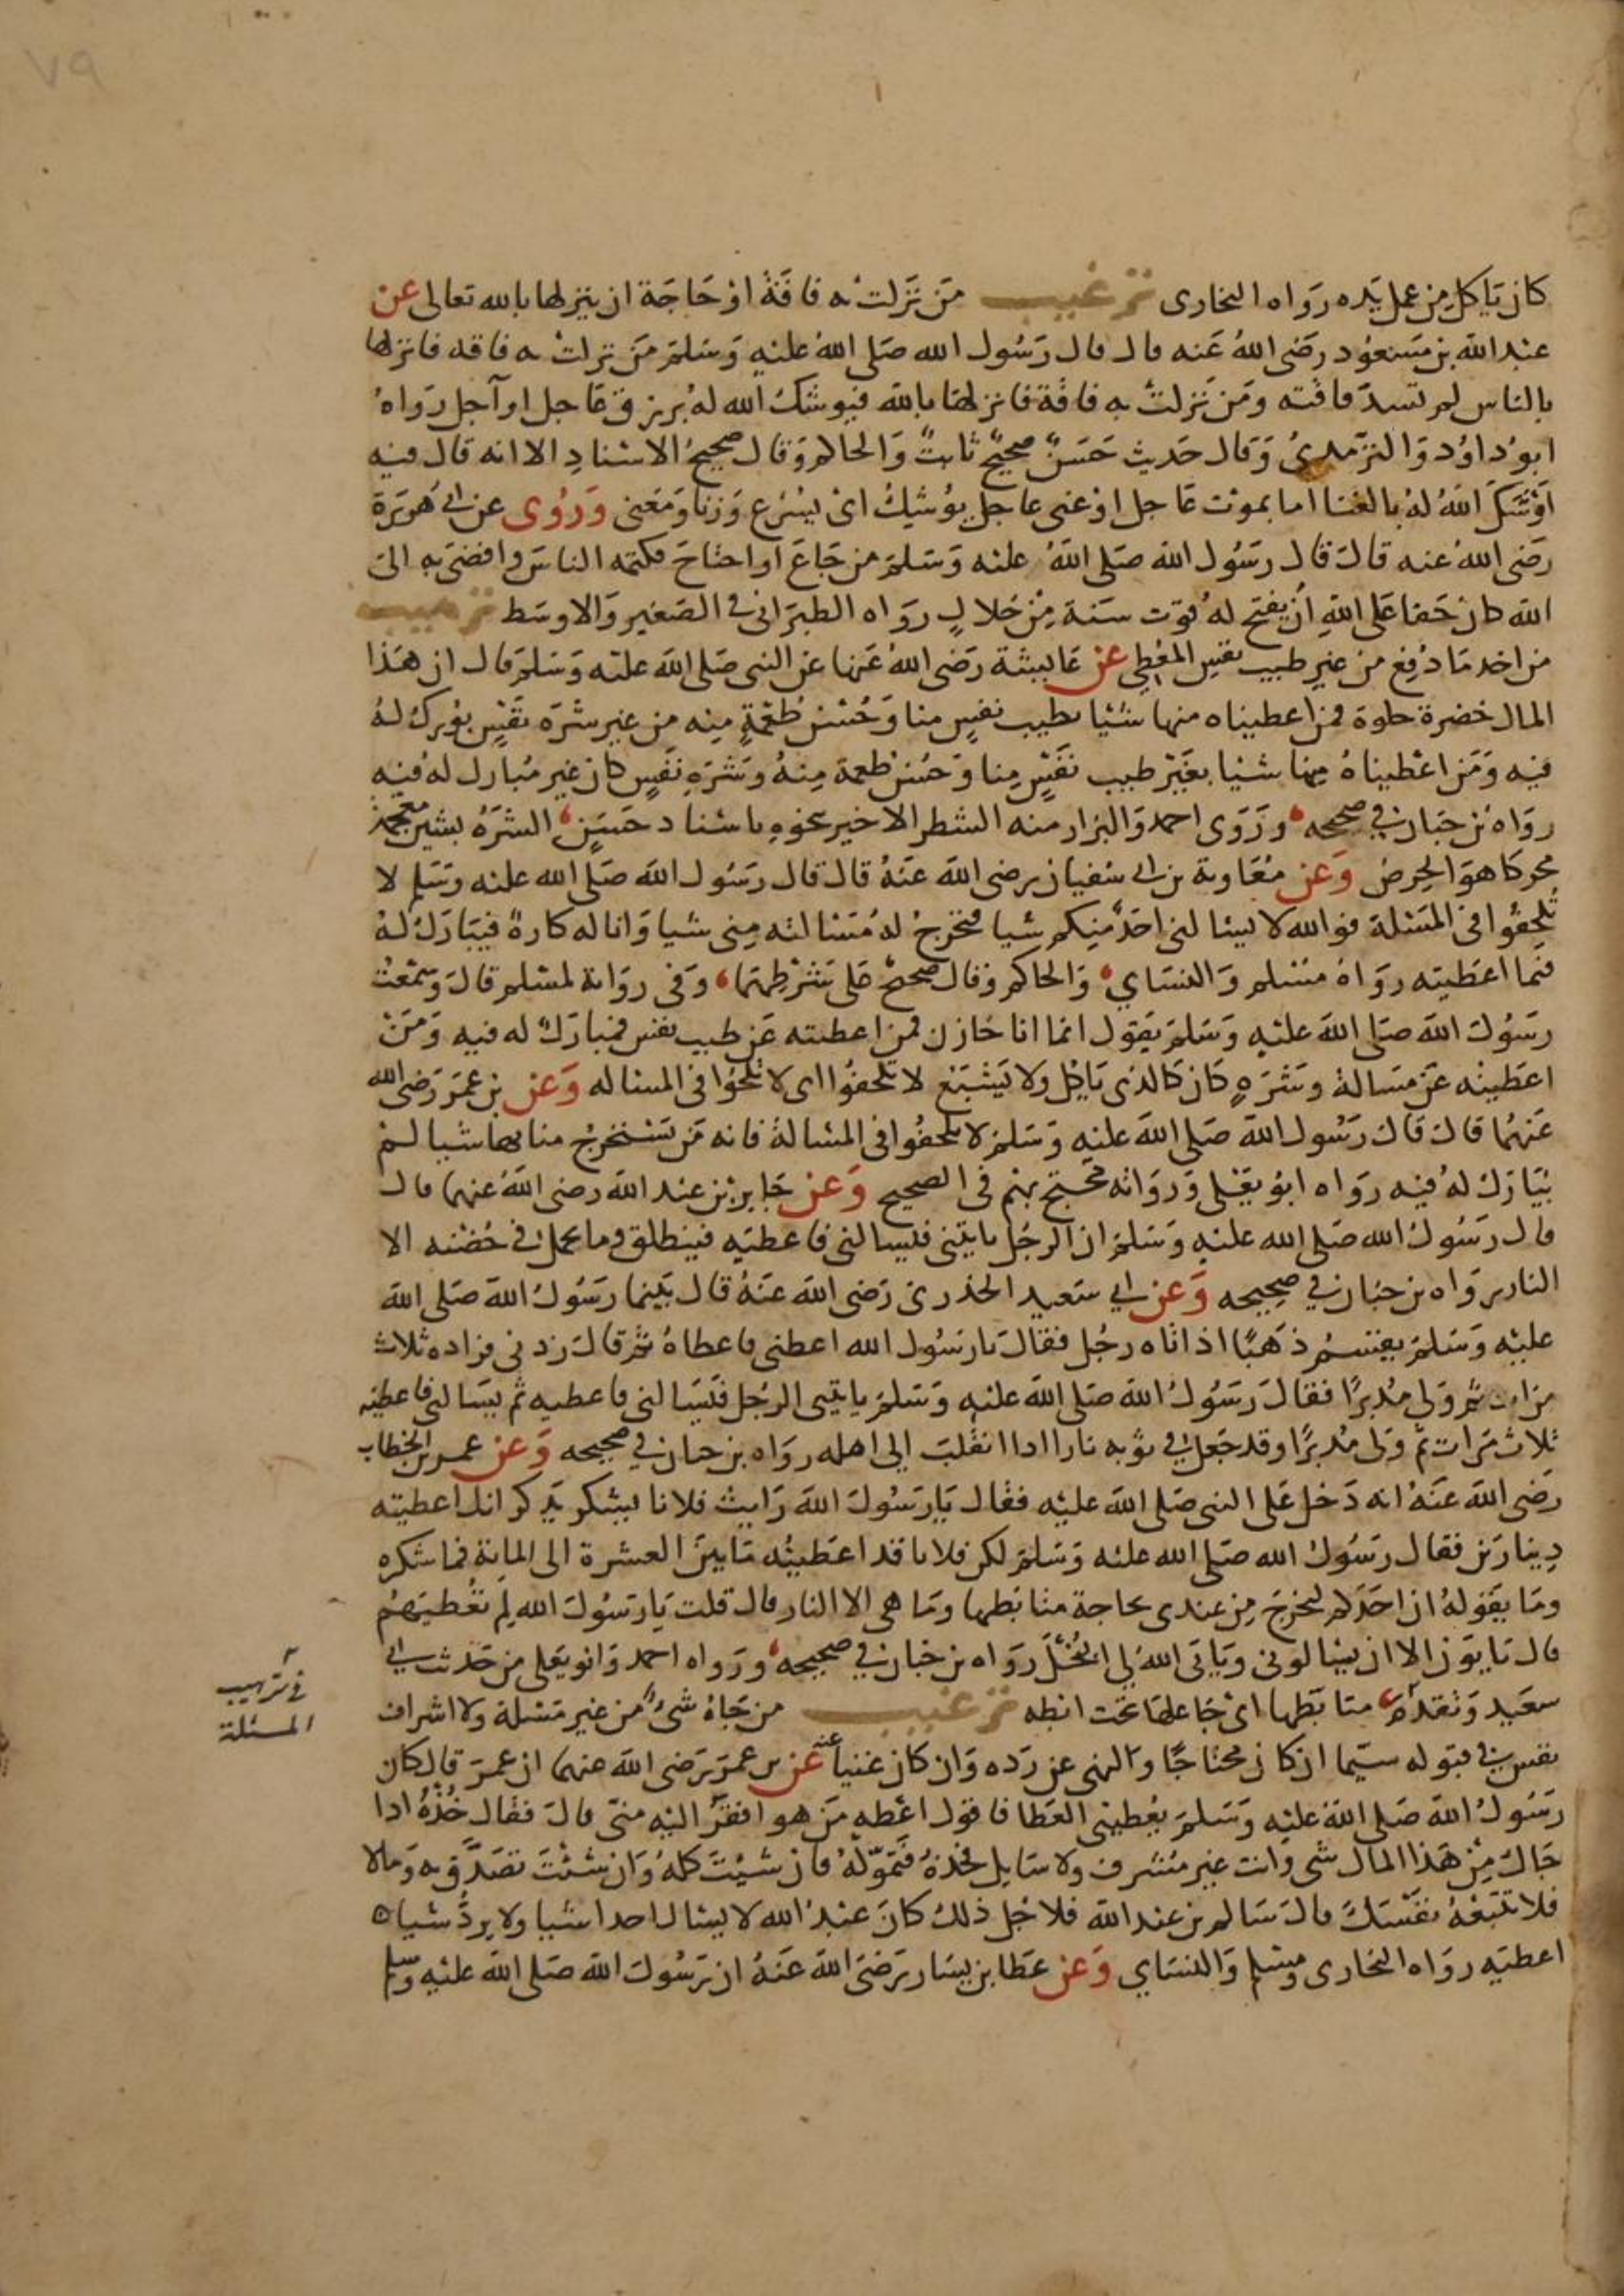 ٧٩
كان يَاكل من عمل يَده رَواه البخارى ترغيب مَن نَزَلت به فاقَةٌ اوْ حَاجَة ان ينزلها بالله تعالى عن
عبد الله بن مَسعوُد رضَى اللهُ عَنه قال قال رَسُول الله صَلى اللهُ عليْهِ وَسَلمَ مَن نزلتْ به فاقه فانزلها
بالناس لم تسدّ فاقته ومَن نَزلتْ به فاقَة فانزلهَا بالله فيوشكُ الله لهُ برِزق عَاجل او آجل رَواهُ
ابوُ داوُد وَالترمدىُ وَقال حَديث حَسَنٌ صحيحٌ ثابتٌ وَالحاكم وَقال صحيحُ الاسنادِ الا انه قال فيه
اَوْشَكَ اللهُ لهُ بالغنا اما بموت عَاجل اوْ غنى عاجل يوُشيكُ اىْ يُسْرع وَزنا وَمَعنى وَرُوى عن ابى هُريَرة
رَضى اللهُ عنه قالَ قال رسَوُل الله صَلى اللهُ عليه وَسَلمَ من جَاعَ او احتاجَ فكتمه الناسَ وافضىَ به الىَ
الله كان حَقا عَلى اللهِ أن يفتح لهُ قوت سنة مِنْ حَلالٍ روَاه الطبَرانى في الصَغير وَالاوسَط ترهيب
من اخد مَا دُفِع من غيرِ طيب نفسِ المُعْطِى عن عَايشة رَضى اللهُ عَنها عن النبى صَلى اللهَ عليْه وَسَلمَ قال ان هَذا
المال خضرة حلوة فمن اعطيناه منها شئيا بطيب نفسٍ منا وَحُسْن طُعْمَةٍ مِنه من غير شرَه نَفْسٍ بوُرك لهُ
فيْه وَمَن اعْطيناهُ مِنها شئيا بغَيْر طيب نَفْسٍ مِنا وَحُسْن طعمة مِنهُ وشَرَهِ نَفسٍ كان غير مُبارك لهُ فيْه
روَاه بن حبَان في صحيحه ورَوَى احمد وَالبزار منه الشطر الاخير بنحوهِ باسْنادِ حَسَنٍ الشرَهُ بشين معجمة
محركا هوَ الحِرصُ وَعن مُعَاوية بن ابى سُفيان رضى الله عَنهُ قال قال رسَوُل الله صَلى الله عليه وَسَلم لا
تُلحِفوُا فى المَسْئلة فوالله لا يسْالنى احَدٌ مِنكم شيا فتخرجُ لهُ مُسَالته مِنى شيا وَانا له كارهٌ فيَبَارَكُ لهُ
فيمَا اعَطيته روَاهُ مسْلم وَالنسَاي وَالحاكم وَقال صحيحٌ عَلى شَرْطِهمَا وَفى روَاية لمسْلم قالَ وَسَمْعتُ
رَسُولَ الله صَلى الله عليْهِ وَسَلمَ يَقول انما انا خَازن فمن اعطيته عَن طيب نفس فمبَاركٌ له فيه وَمنْ
اعَطيته عَن مسَالة وشَرَهٍ كان كَالذى يَاكل ولا يَشْبَع لا تُلْحفوُا اى لا تلحوُا فى المساله وَعن بن عمَر رَضى الله
عَنهُما قالَ قالَ رَسُول الله صَلى الله عليْهِ وَسَلم لا تلحفوُا فى المسْالة فانه مَن يَسْتخرجُ منا بها شيا لمْ
يُبَارَك لهُ فيْه روَاه ابوُ يَعْلى وَروَاته مُحتج بهمْ فى الصحيح وَعن جَابر بْن عند الله رضى اللهُ عنهما قالَ
قالَ رَسُولُ الله صَلى الله عليْهِ وَسَلمَ ان الرجُل يايتنى فليسالنى فاعطيَه فينطلق وما يحمل في حُضْنه الا
النار روَاه بن حبَان في صحيحه وَعن ابي سَعيد الخذرى رَضى الله عَنهُ قال بَينما رسَوُلُ الله صَلى الله
عليْه وَسَلمَ يقسمُ ذهَبًا اذ اتاه رجُل فقالَ يارسَوُل الله اعطنى فاعطاهُ ثمَ قالَ زدنى فزاده ثلاث
مرات ثمَ وَلى مُدْبرًا فقالَ رسَوُلُ الله صَلى الله عليهِ وَسَلمَ ياتينى الرجل فيَسَالنى فاعطيه ثم يسَالنى فاعطيه
ثلاث مَرات ثم وَلى مُدْبرًا وقد جَعل في ثوْبه نارا ادا انقلبَ الى اهله روَاه بن حبان في صحيحه وَعن عمر بن الخطاب
رَضى الله عَنهُ انه دَخل عَلى النبى صَلى اللهَ عليْه فقال يَا رَسُولَ الله رَايتُ فلانا يشكر يَذكر انك اعطيته
دينارَين فقال رسَوُلُ الله صَلى الله عليْه وَسَلمَ لكن فلانا قد اعَطيتُه مَا بينَ العشرة الى المايَة فما شكره
ومَا يقَولهُ ان احَدَكم ليخرجَ مِن عندى بحاجة متابَطها وَمَا هى الا النار قال قلت يَا رَسُولَ الله لِم تُعْطيَهمُ
قال يَابَوْن الا ان يسْالونى ويَابَى اللهُ لي البُخْلَ روَاه بن حبَان في صحيحه ورَواه احمد وَابو يَعلى من حَديث ابي
سعَيد وَتقدَمَ متابَطها اىْ جَاعلهَا تحت ابطه ترغيب من جَاهُ شىءٌ من غير مَسْئلة ولا اشراف
نفس في قبوله سيّما ان كان محتاجًا والنهى عن رَده وَان كان غنيا عنه عن بن عمرَ رَضى الله عنهما ان عمرَ قال كان
رَسُولُ الله صَلى الله عليْه وَسَلمَ يُعْطينى العَطا فاقول اعْطهِ مَن هو افقرُ اليْهِ منىّ قالَ فقال خُذْهُ ادا
جَاكَ مِنْ هَذا المال شى وَانت غير مُشرف ولا سَايل فخذهُ فتَمَوّلهُ فان شيْتَ كلهُ وَان شئْتَ تصَدَّق به وَمالا
فلا تتبَعْهُ نفْسَكَ قالَ سَالم بن عند الله فلاجْل ذلك كانَ عَبدُ الله لا يسْال احدا شيا ولا يردُّ شيا
اعطيَه روَاه البخارى ومسْلم وَالنسَاي وَعن عَطا بن يسَار رَضىَ الله عَنهُ ان رَسُولَ الله صَلى الله عليْه وسلم
في ترهيب
المسئلة